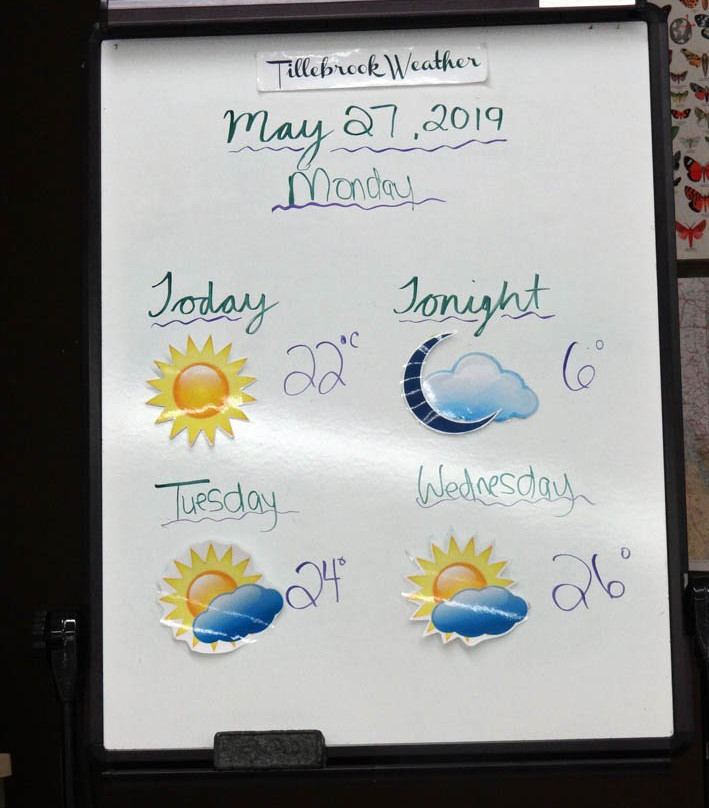 Tillebrook Weather
May 27, 2019
Monday
Today
22°C
Tonight
6°
Tuesday
24°
Wednesday
26°